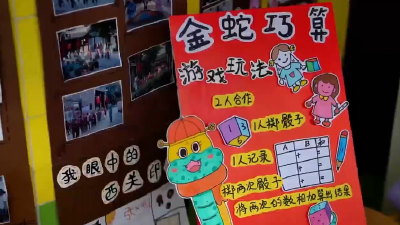 金蛇巧算
游戏玩法
2人合作
1人掷骰子
1人记录
掷两次骰子
将两次的数相加算出结果
我眼中的
西关